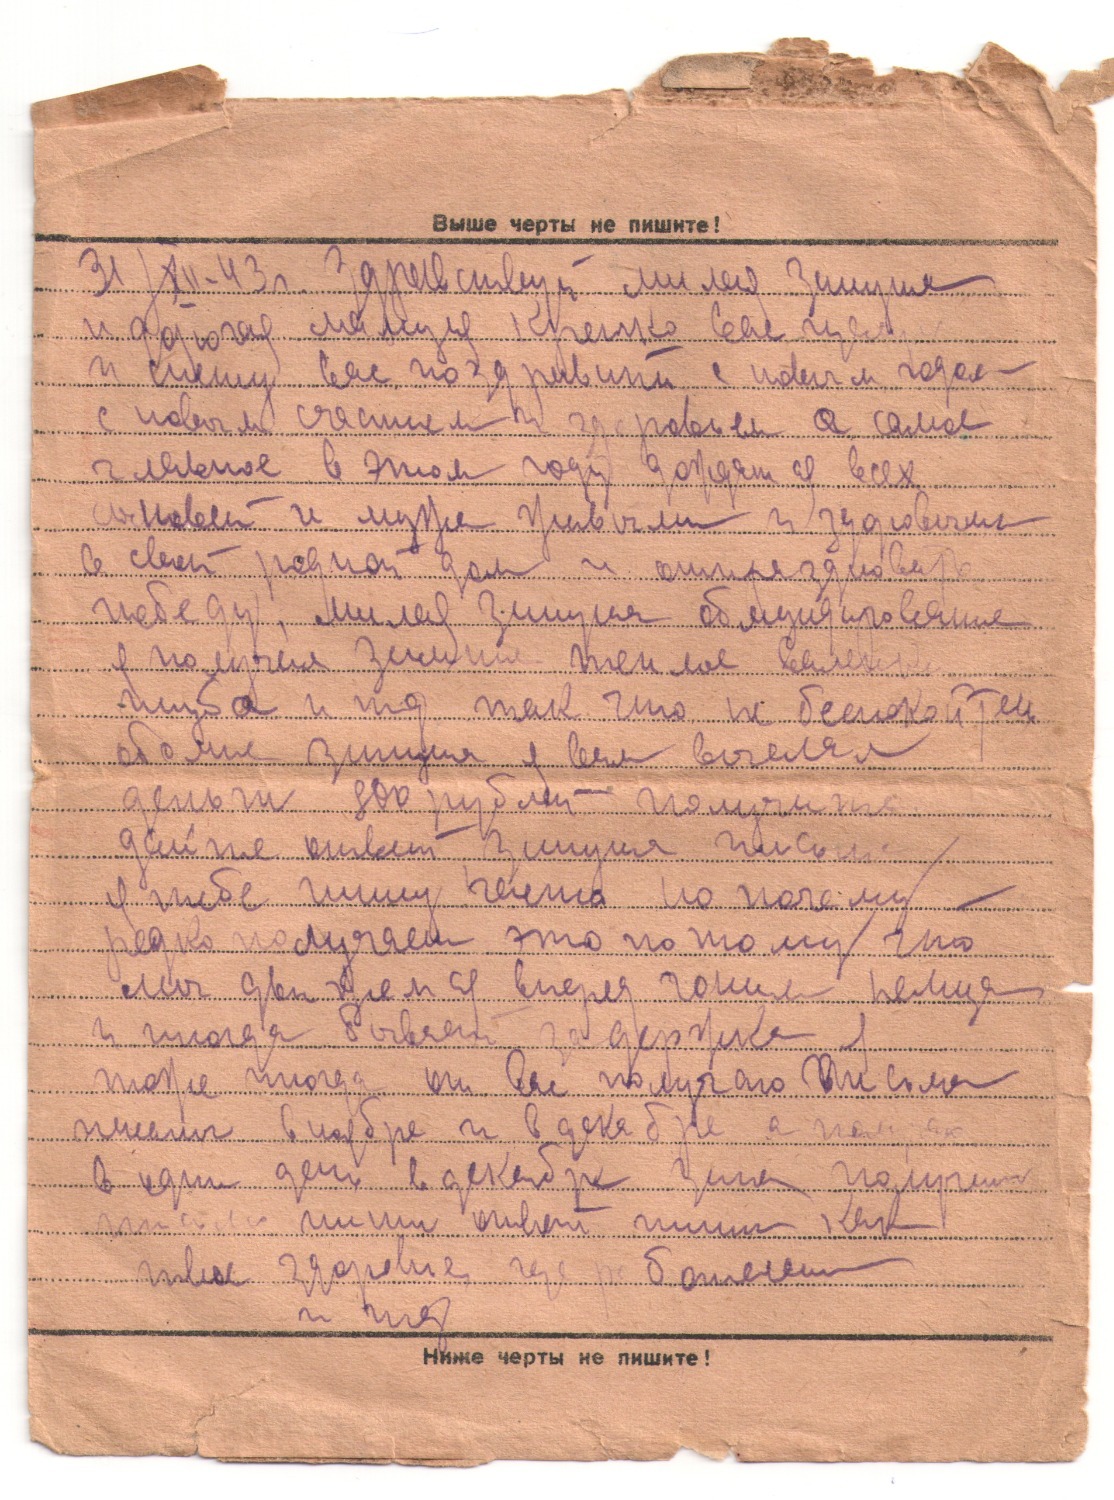 Выше черты не пишите!
31/XII-43г. Здравствуй милая Зинуша
и дорогая мамуся крепко вас целую
и спешу вас поздравить с новым годом
с новым счастием и здоровьем а самое
главное в этом году дождаться всех
сыновей и мужа живыми и здоровыми
в свой родной дом и отпраздновать
победу, милая Зинуша обмундирование
я получил зимние теплое валенки
шуба и тд так что не беспокойтесь
обо мне Зинуша я вам выслал
деньги 800 рублей получите
дайте ответ Зинуша письма
я тебе пишу часто но почему
редко получаеш это потому что
мы движемся вперед гоним немца
и иногда бывает задержка я
тоже иногда от вас получаю письма
писаны в ноябре и в декабре а
в один день в декабре Зина получиш
письмо пиши ответ пиши как
твое здоровие, где работаеш
и тд
Ниже черты не пишите!